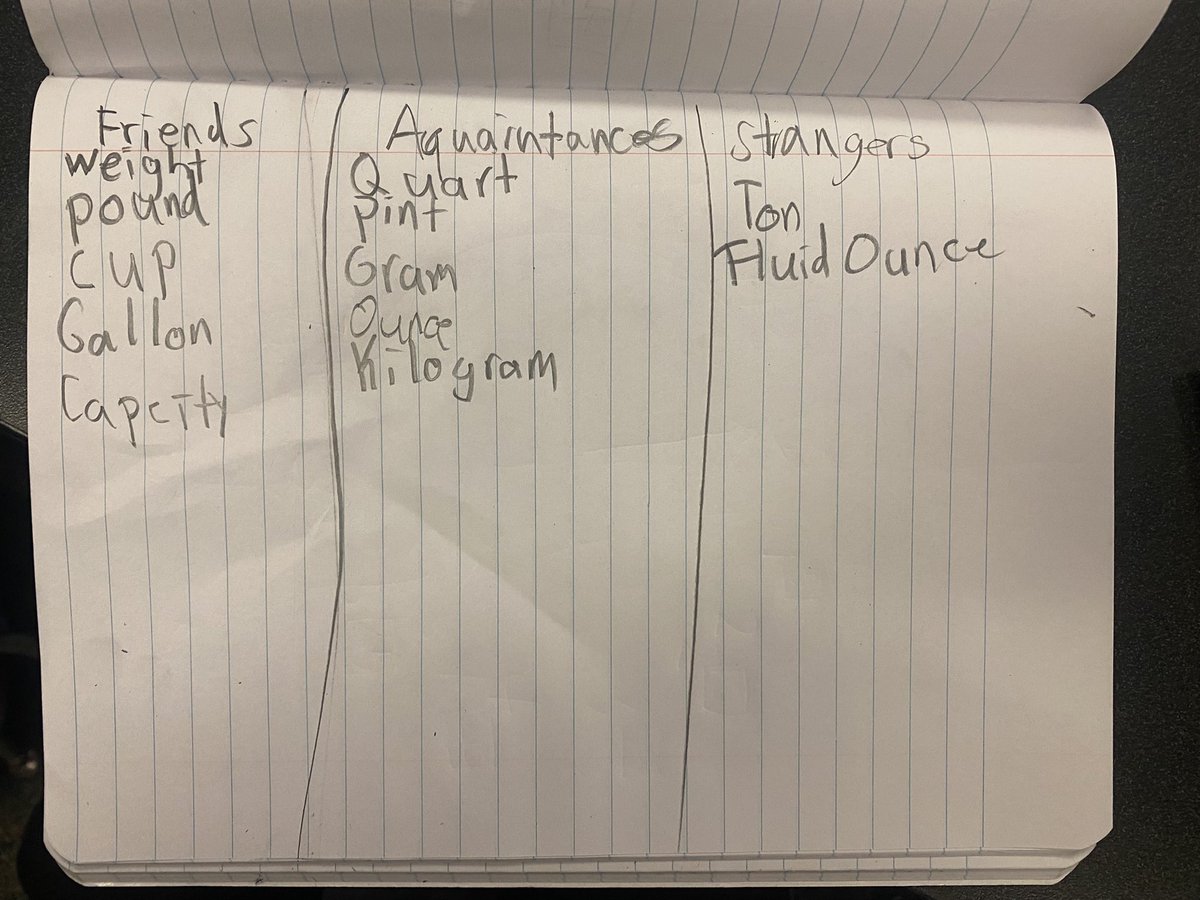 Friends
weight
pound
cup
Gallon
Capcity
Aquaintances
Quart
pint
Gram
Ounce
Kilogram
Strangers
Ton
Fluid Ounce